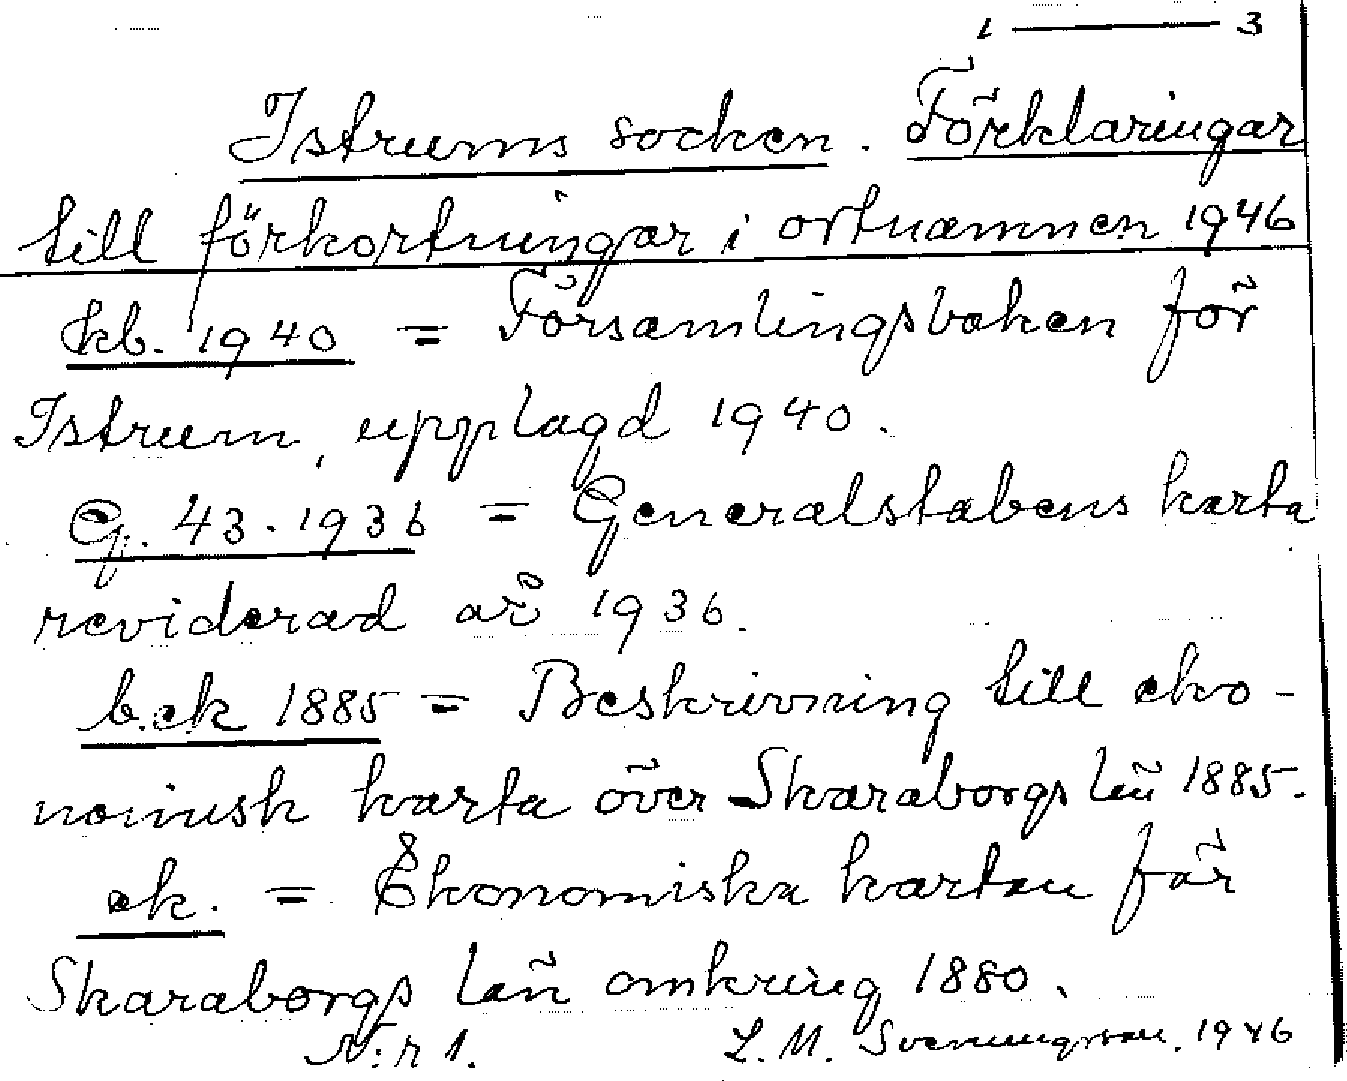 1 — 3
Istrums socken. Förklaringar
till förkortningar i ortnamnen 1946
kb. 1940 = Församlingsboken för
Istrum, upplagd 1940.
G. 43. 1936 = Generalstabens karta
reviderad år 1936.
b.ek 1885 = Beskrivning till eko-
nomisk karta över Skaraborgs län 1885.
ek. = Ekonomiska kartan för
Skaraborgs län omkring 1880.
N:r 1. L. M. Svenungsson. 1946